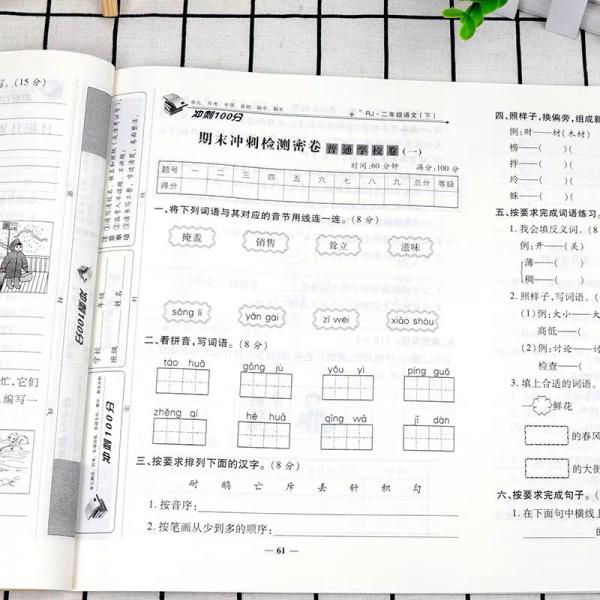 写。(15分)
忙,它们
编写一
冲刺100分
学校 年级
班级 姓名
冲刺100分
单元、月考、专项、易错、期中、期末
冲刺100分
RJ·二年级语文(下)
期末冲刺检测密卷 普通学校卷 (一)
时间:60分钟 满分:100分
题号 一 二 三 四 五 六 七 八 九 总分 等级
得分
一、将下列词语与其对应的音节用线连一连。(8分)
掩盖 销售 耸立 滋味
sǒng lì yǎn gài zī wèi xiāo shòu
二、看拼音,写词语。(8分)
táo huā gōng jù yōu yì píng guǒ
zhěng qí hé huā qīng wā jī dàn
三、按要求排列下面的汉字。(8分)
耐 鹅 亡 斥 丢 针 积 勾
1. 按音序:
2. 按笔画从少到多的顺序:
— 61 —
四、照样子,换偏旁,组成新
例:财——材(木材)
榜——( )(
拌——( )(
玲——( )(
蛛——( )(
五、按要求完成词语练习。
1. 我会填反义词。(8分)
例:开——(关)
薄——(
稠——(
2. 照样子,写词语。(8
(1)例:大小——大
高低——(
(2)例:讨论——讨
检查——(
3. 填上合适的词语。
鲜花
的春风
的大街
六、按要求完成句子。(
1. 在下面句中横线上
的